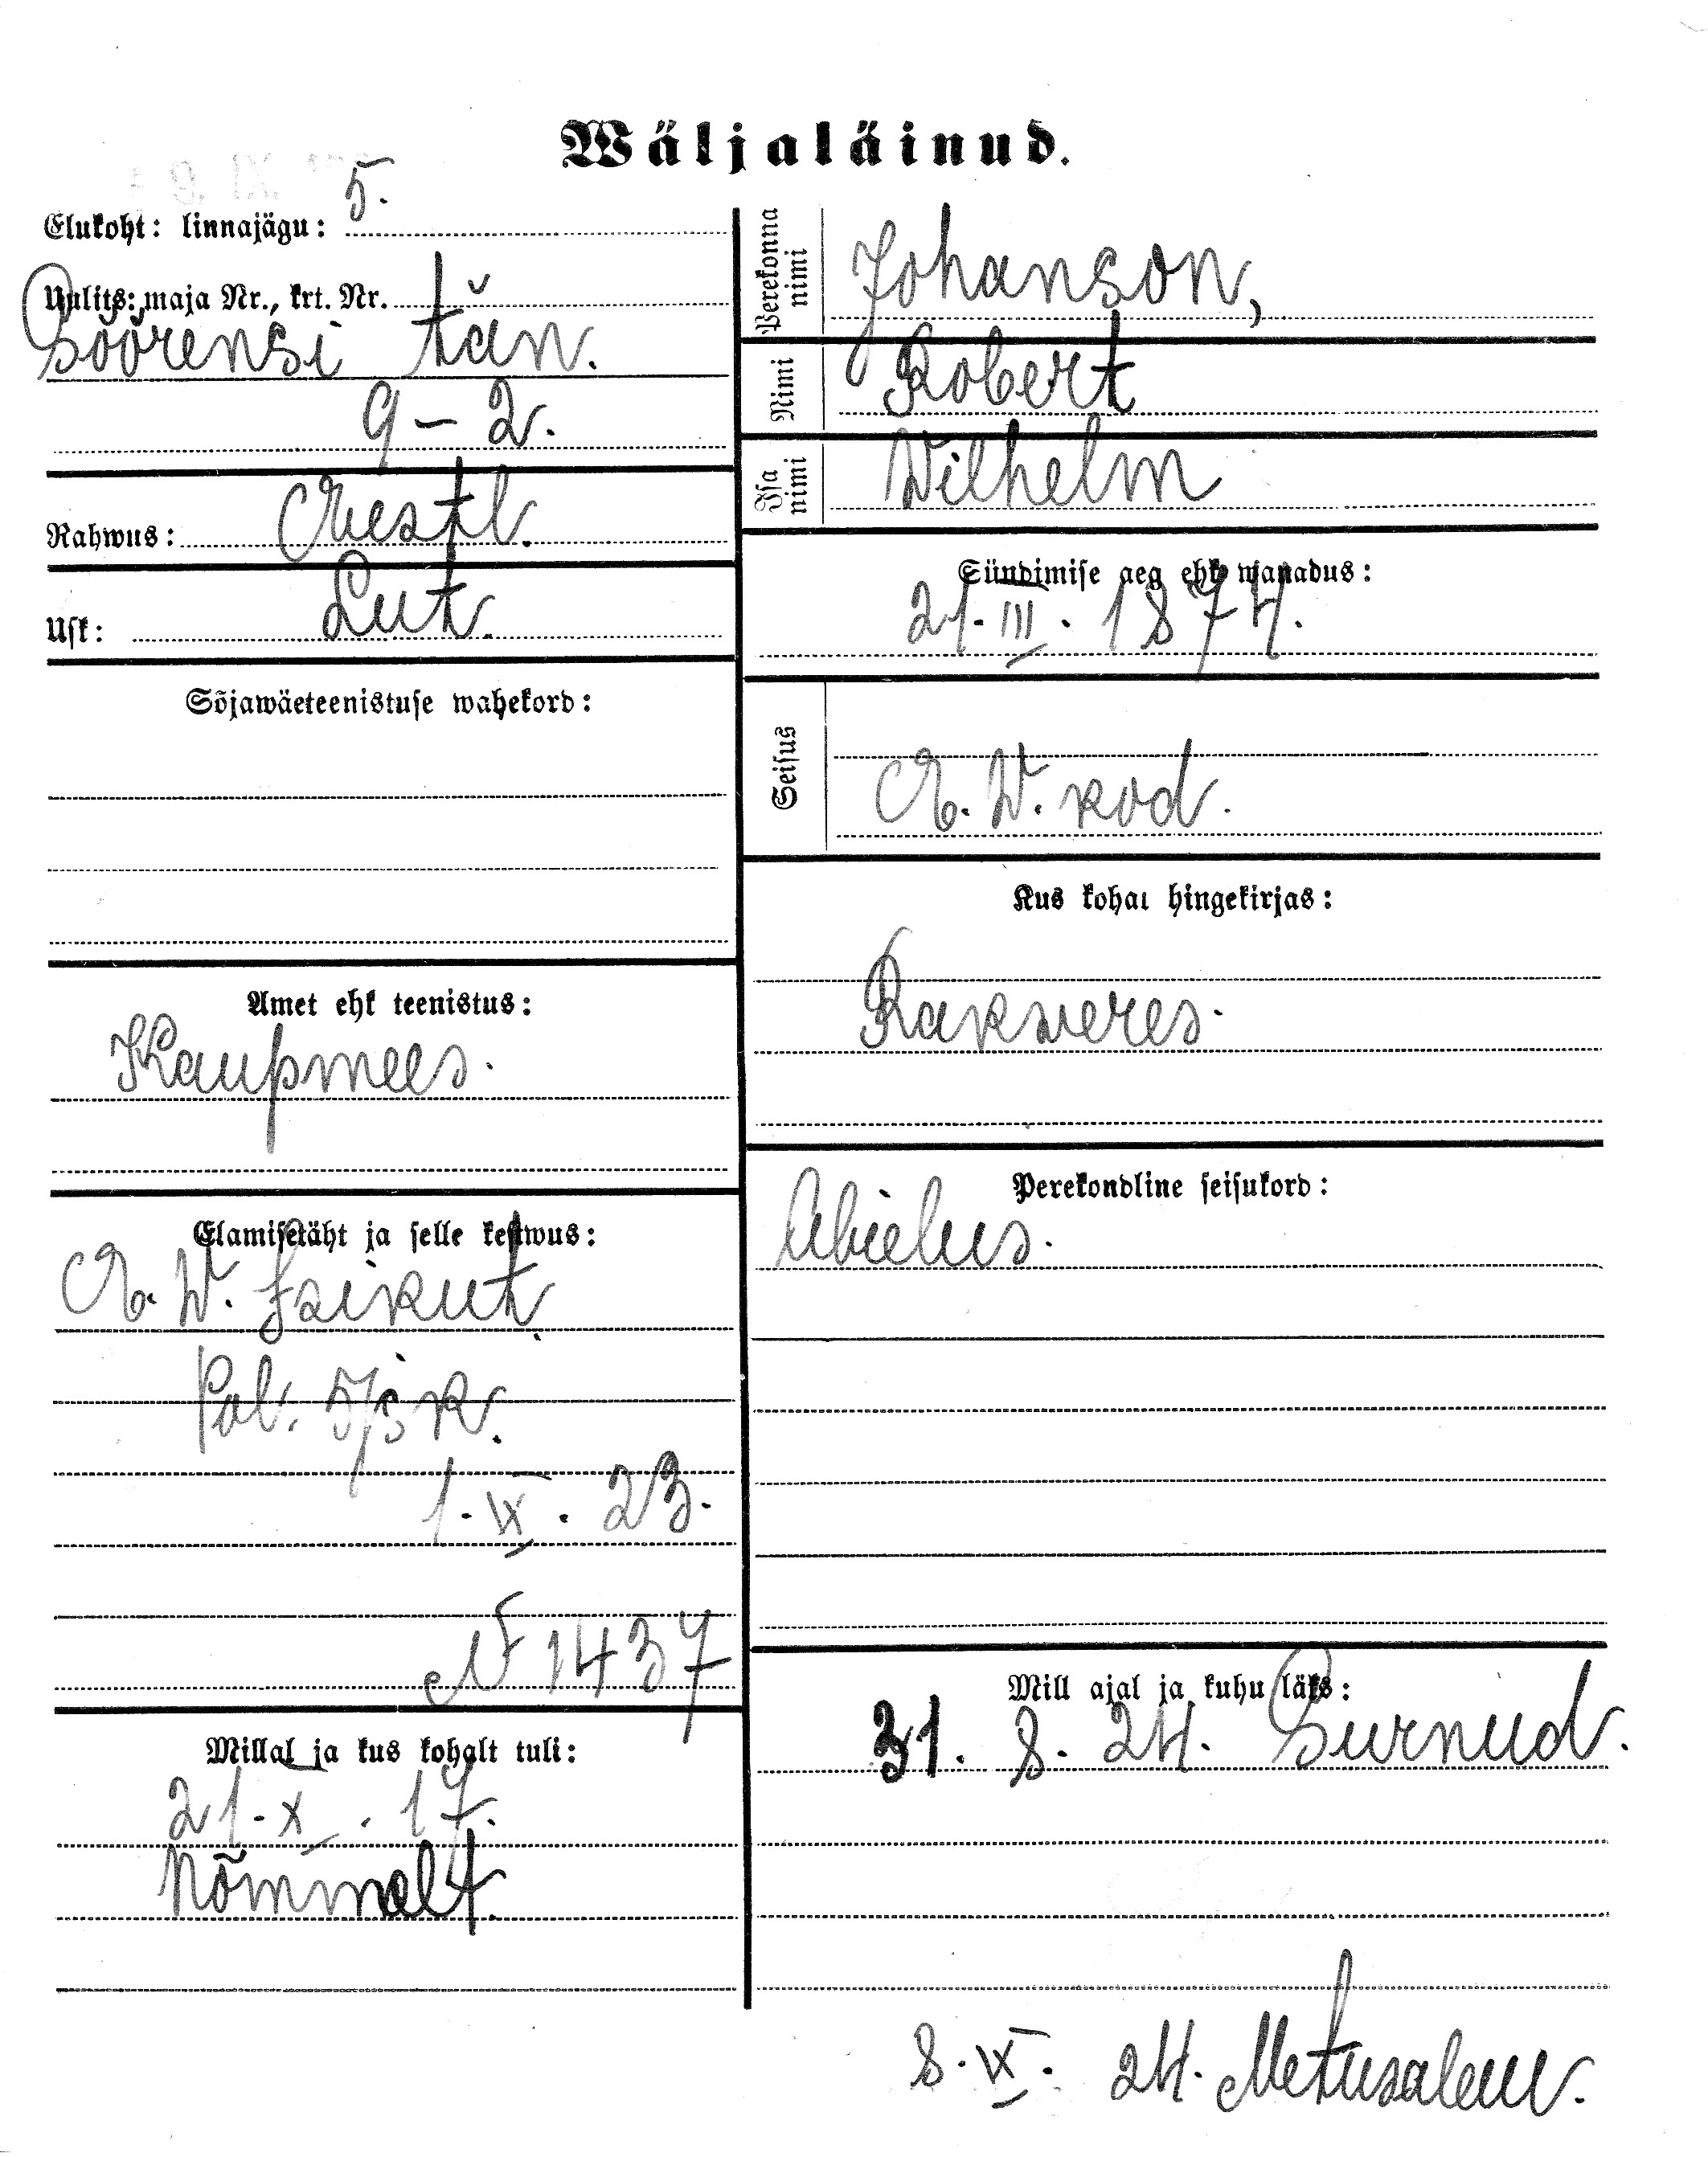 Wäljaläinud.
Elukoht: linnajägu: 5.
Uulits: maja Nr., krt. Nr.
Söörensi tän.
9 – 2.
Rahwus: Eestl.
Usk: Lut.
Sõjawäeteenistuse wahekord:
Amet ehk teenistus:
Kaupmees.
Elamisetäht ja selle kestwus:
E. W. Isikut.
Pol. 5/jsk.
1. IX. 23.
№ 1437
Millal ja kus kohalt tuli:
21. X. 17.
Nõmmelt.
Perekonna nimi Johanson,
Nimi Robert
Isa nimi Wilhelm
Sündimise aeg ehk wanadus:
21. III. 1874.
Seisus E. W. kod.
Kus kohal hingekirjas:
Rakweres.
Perekondline seisukord:
Abielus.
Mill ajal ja kuhu läks:
31. 8. 24. Surnud.
8. IX. 24. Metusalem.